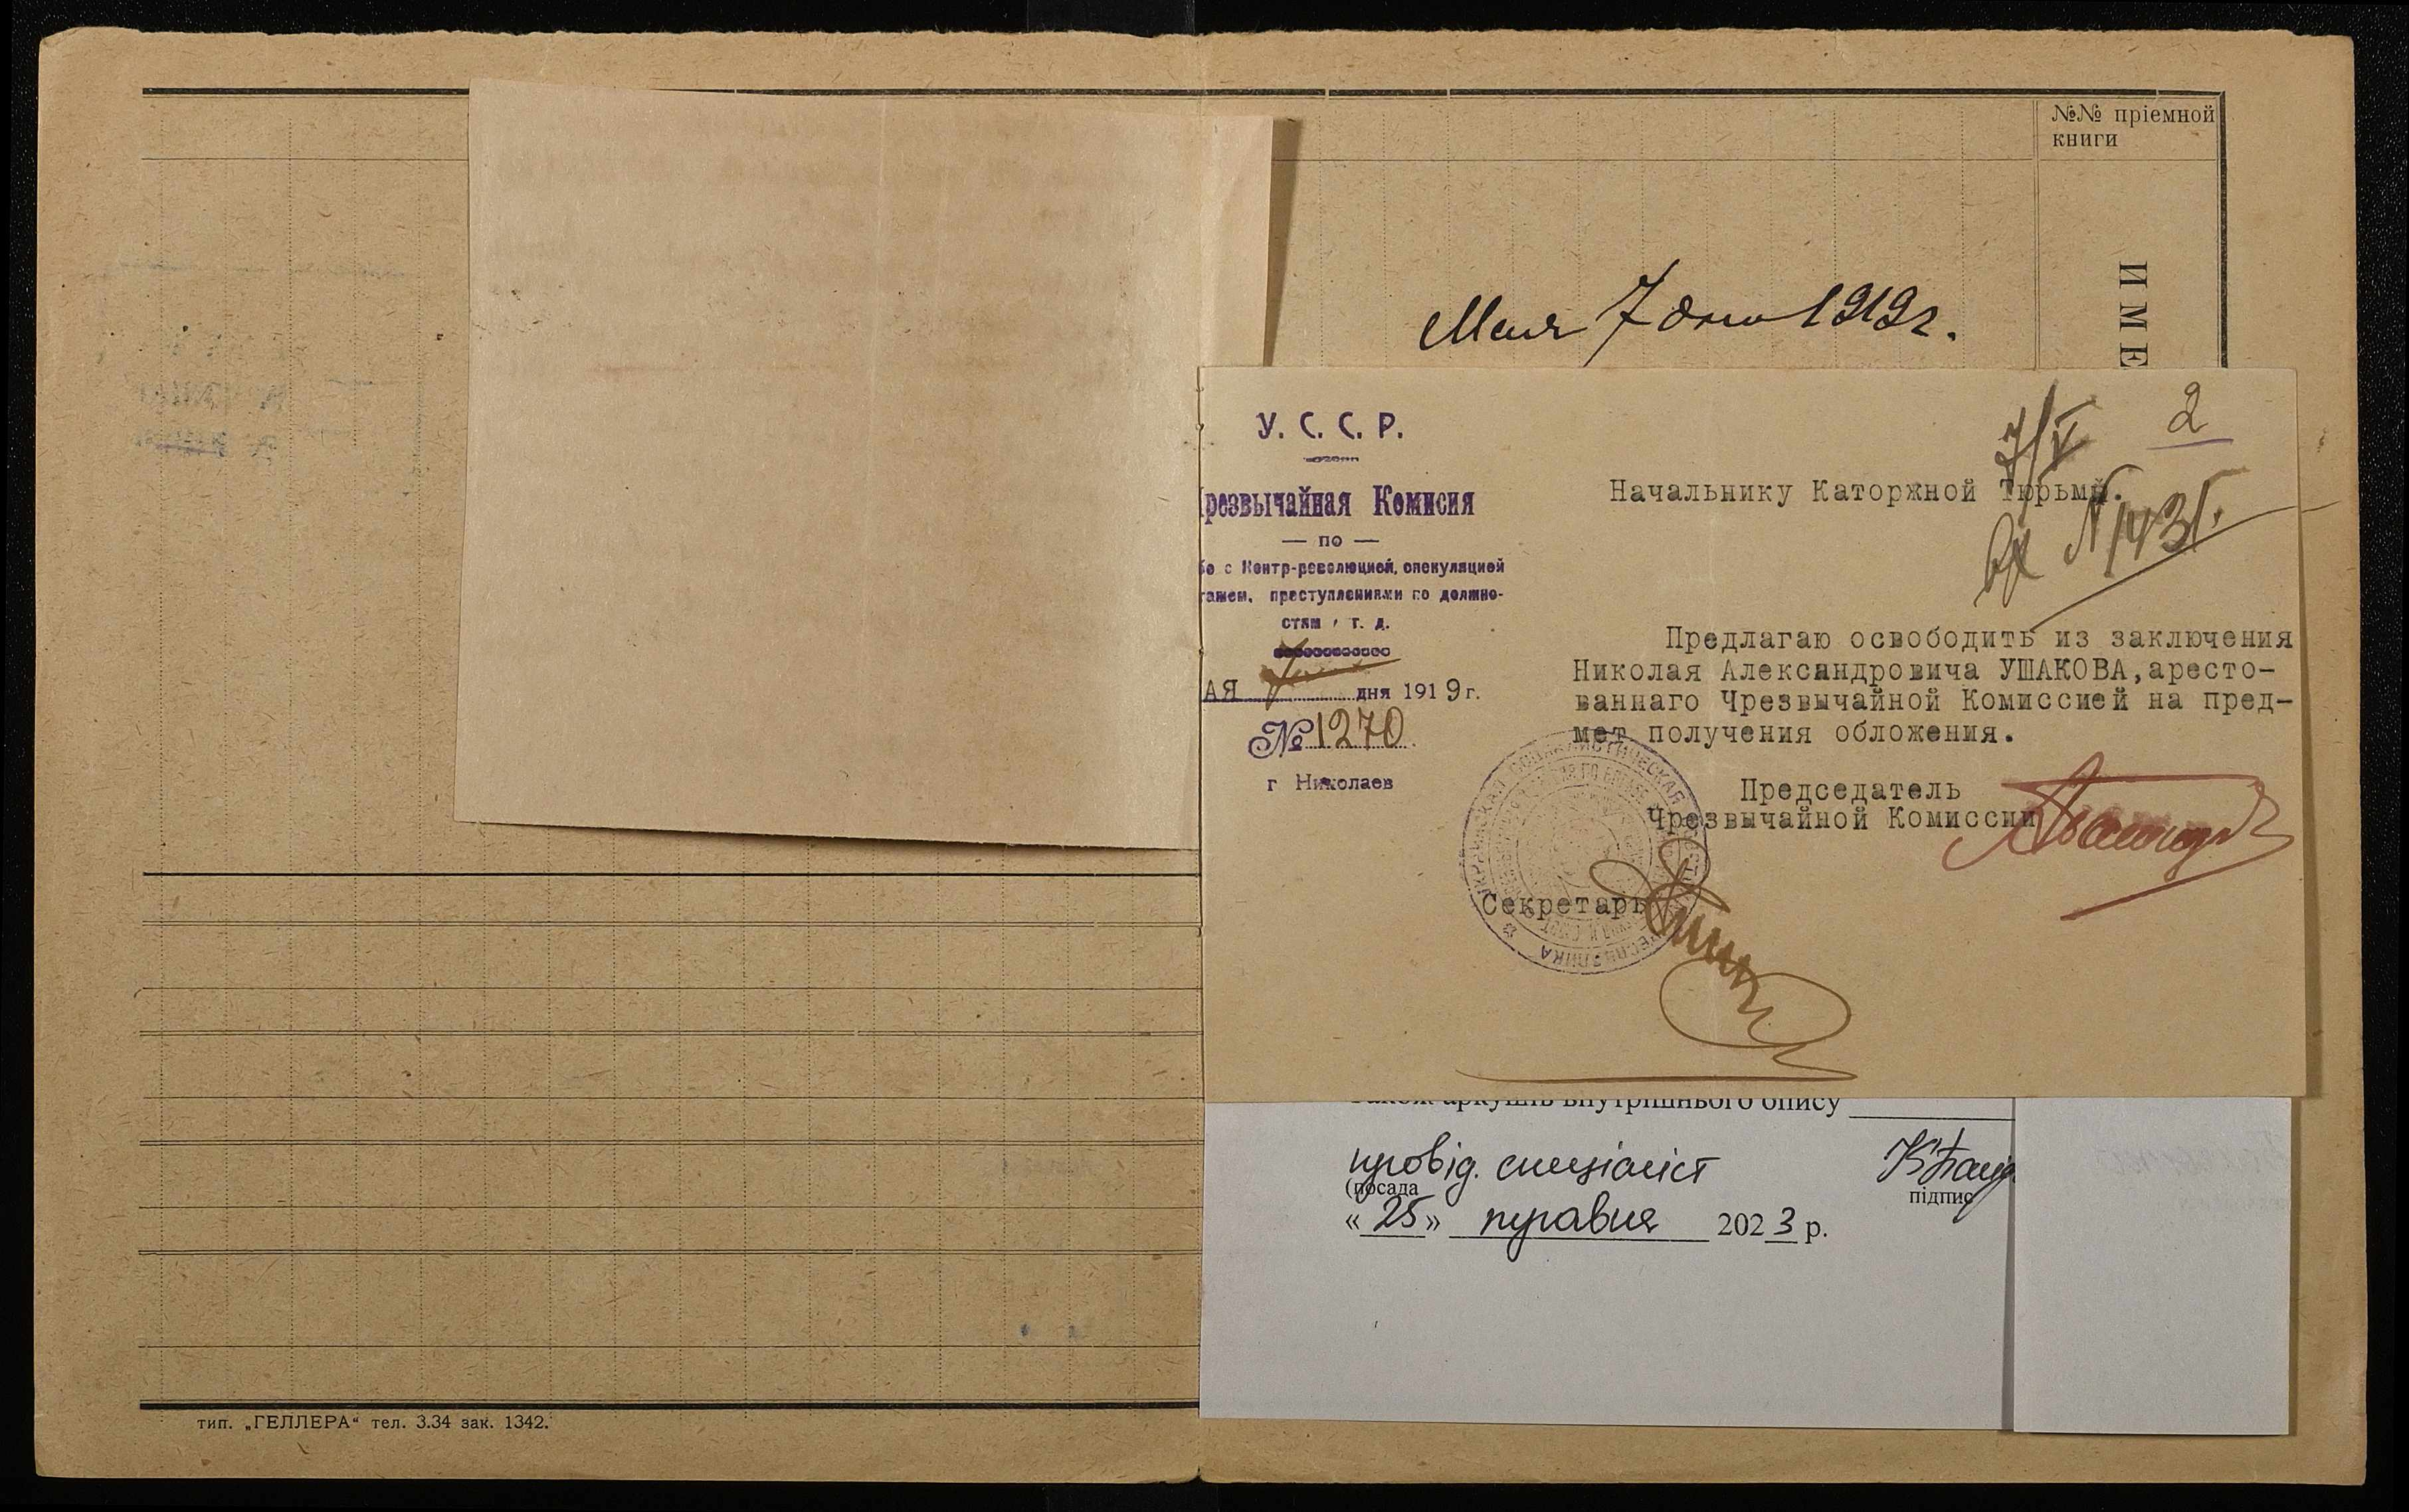 №№ пріемной
книги
ИМЕ
Мая 7 дня 1919 г.
2
7/V
вх N 1431.
У. С. С. Р.
резвычайная Комисия
— по —
бе с Контр-революцией, спекуляцией
тажем, преступлениями по должно-
стям и т. д.
АЯ 7 дня 1919 г.
№ 1270
г Николаев
Начальнику Каторжной Тюрьмы.
Предлагаю освободить из заключения
Николая Александровича УШАКОВА, аресто-
ваннаго Чрезвычайной Комиссией на пред-
мет получения обложения.
Председатель
Чрезвычайной Комиссии
Секретарь
УКРАИНСКАЯ СОЦИАЛИСТИЧЕСКАЯ РЕСПУБЛИКА
також аркушів внутрішнього опису
провід. спеціаліст
(посада
підпис
« 25 » травня 2023 р.
тип. „ГЕЛЛЕРА“ тел. 3.34 зак. 1342.